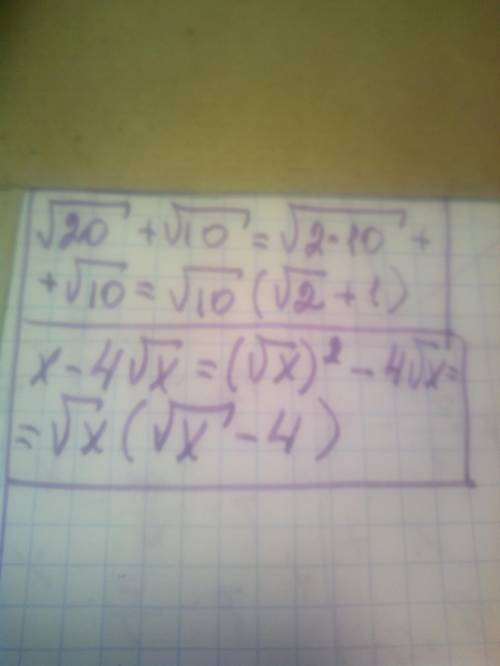 √20 + √10 = √2·10 +
+ √10 = √10 (√2 + 1)
x - 4√x = (√x)² - 4√x =
= √x (√x - 4)